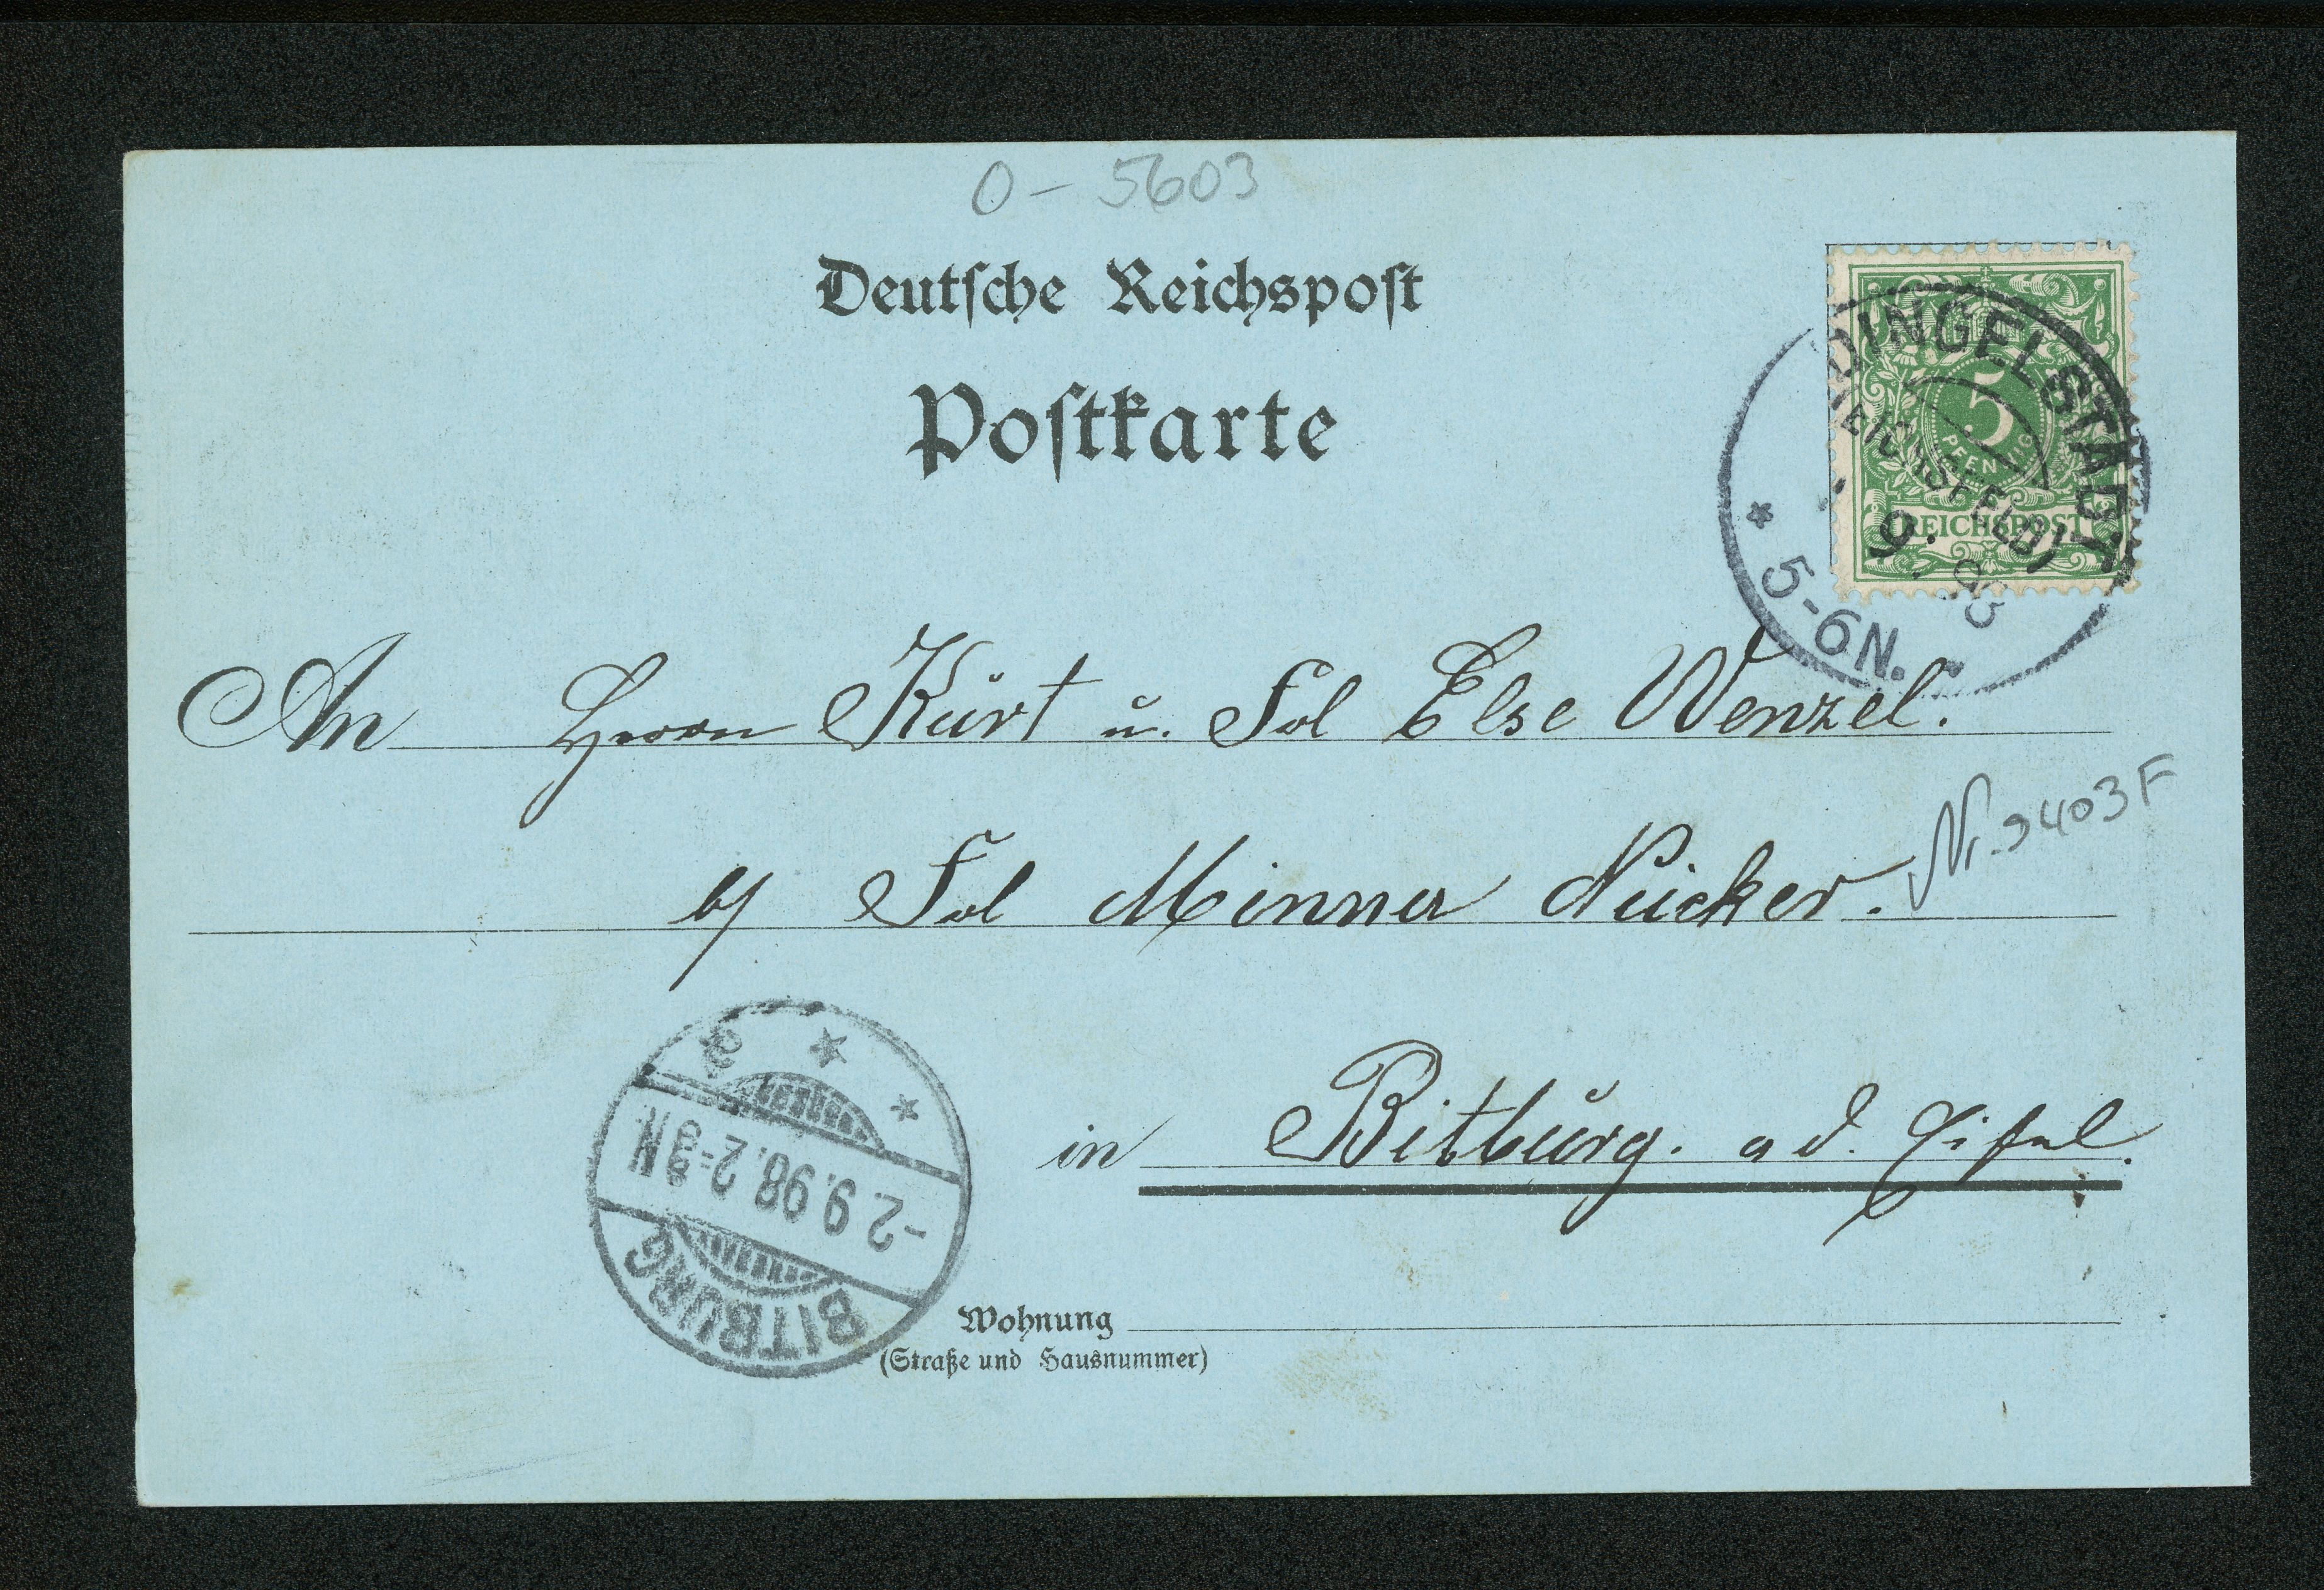 O - 5603
Deutsche Reichspost
Postkarte
5
PFENNIG
REICHSPOST
DINGELSTÄDT
(EICHSFELD)
9. 98
* 5-6N.
An Herrn Kurt u. Frl Else Wenzel.
b/ Frl Minna Nücker.
Nr. 9403F
in Bitburg. a d. Eifel.
BITBURG
-2.9.98.2-3N
* *
Wohnung
(Straße und Hausnummer)